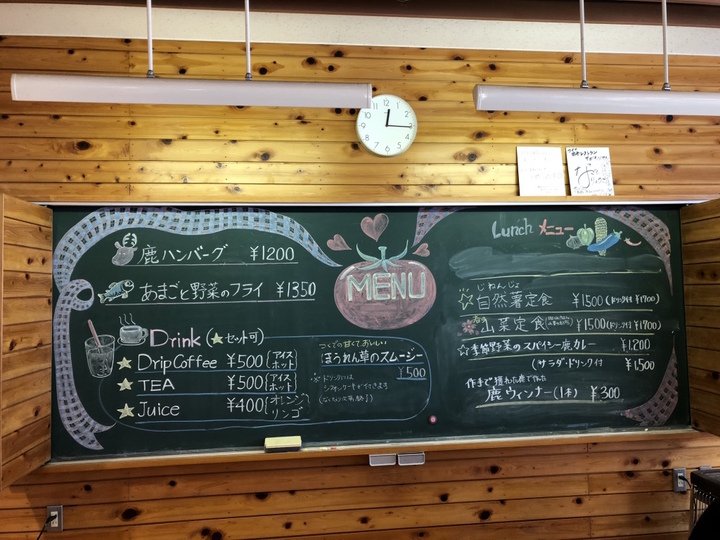 鹿ハンバーグ ¥1200
あまごと野菜のフライ ¥1350
Drink (★セット可)
★ Drip Coffee ¥500 (アイス ホット)
★ TEA ¥500 (アイス ホット)
★ Juice ¥400 (オレンジ リンゴ)
つくでの甘くておいしい
ほうれん草のスムージー
¥500
MENU
Lunch メニュー
じねんじょ
☆自然薯定食 ¥1500 (ドリンク付 ¥1700)
山菜定食 ¥1500 (ドリンク付 ¥1700)
☆季節野菜のスパイシー鹿カレー ¥1,200
(サラダ・ドリンク付 ¥1,500
作手で獲れた鹿で作った
鹿ウィンナー(1本) ¥300
12
1
2
3
4
5
6
7
8
9
10
11